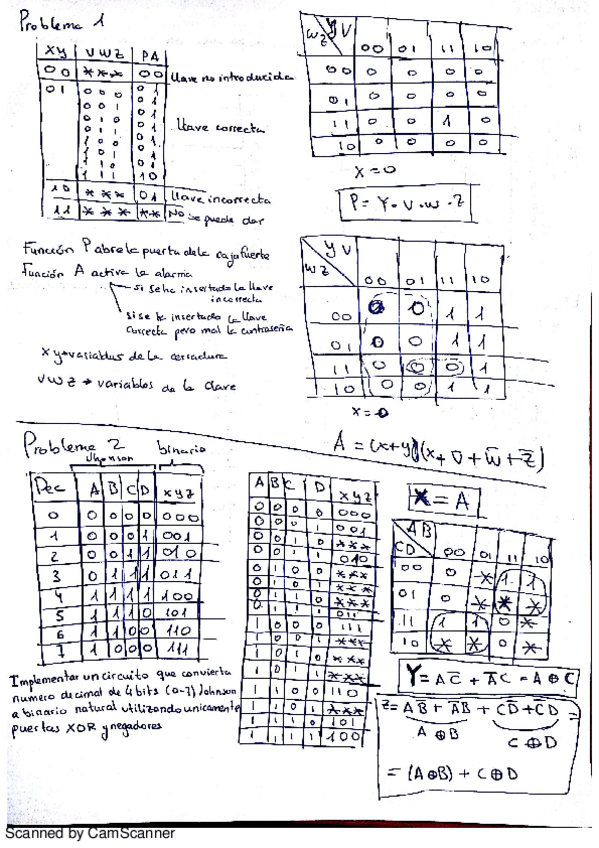 Problema 1
XY | VWZ | PA
00 | *** | 00 llave no introducida
01 | 000 | 01
001 | 01
010 | 01
011 | 01 llave correcta
100 | 01
101 | 01
110 | 01
111 | 10
10 | *** | 01 llave incorrecta
11 | *** | ** No se puede dar
YV
WZ
00 01 11 10
00 0 0 0 0
01 0 0 0 0
11 0 0 1 0
10 0 0 0 0
X=0
P= Y·V·W·Z
Función P abre la puerta de la caja fuerte
Función A activa la alarma
si se ha insertado la llave
incorrecta
si se ha insertado la llave
correcta pero mal la contraseña
XY→variables de la cerradura
VWZ → variables de la clave
YV
WZ
00 01 11 10
00 0 0 1 1
01 0 0 1 1
11 0 0 0 1
10 0 0 1 1
X=0
A = (x+y)(x+V̅+W̅+Z̅)
Problema 2
Jhonson binario
Dec | A B C D | xyz
0 | 0 0 0 0 | 000
1 | 0 0 0 1 | 001
2 | 0 0 1 1 | 010
3 | 0 1 1 1 | 011
4 | 1 1 1 1 | 100
5 | 1 1 1 0 | 101
6 | 1 1 0 0 | 110
7 | 1 0 0 0 | 111
Implementar un circuito que convierta
numero decimal de 4 bits (0-7) Johnson
a binario natural utilizando unicamente
puertas XOR y negadores
A B C D | xyz
0 0 0 0 | 000
0 0 0 1 | 001
0 0 1 0 | ***
0 0 1 1 | 010
0 1 0 0 | ***
0 1 0 1 | ***
0 1 1 0 | ***
0 1 1 1 | 011
1 0 0 0 | 111
1 0 0 1 | ***
1 0 1 0 | ***
1 0 1 1 | ***
1 1 0 0 | 110
1 1 0 1 | ***
1 1 1 0 | 101
1 1 1 1 | 100
X = A
AB
CD
00 01 11 10
00 0 * 1 1
01 0 * * *
11 1 1 0 *
10 * * 0 *
Y = AC̅ + A̅C = A⊕C
Z = AB̅ + A̅B + CD̅ + C̅D =
A⊕B C⊕D
= (A⊕B) + C⊕D
Scanned by CamScanner